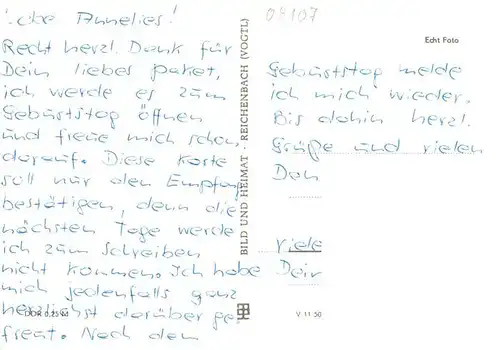 Liebe Annelies!
Recht herzl. Dank für
Dein liebes Paket,
ich werde es zum
Geburtstag öffnen
und freue mich schon
darauf. Diese Karte
soll nur den Empfang
bestätigen, denn die
nächsten Tage werde
ich zum Schreiben
nicht kommen. Ich habe
mich jedenfalls ganz
herzlichst darüber ge-
freut. Nach dem
DDR 0,25 M
BILD UND HEIMAT · REICHENBACH (VOGTL)
Echt Foto
Geburtstag melde
ich mich wieder.
Bis dahin herzl.
Grüße und vielen
Dan
viele
Dein
V 11 50